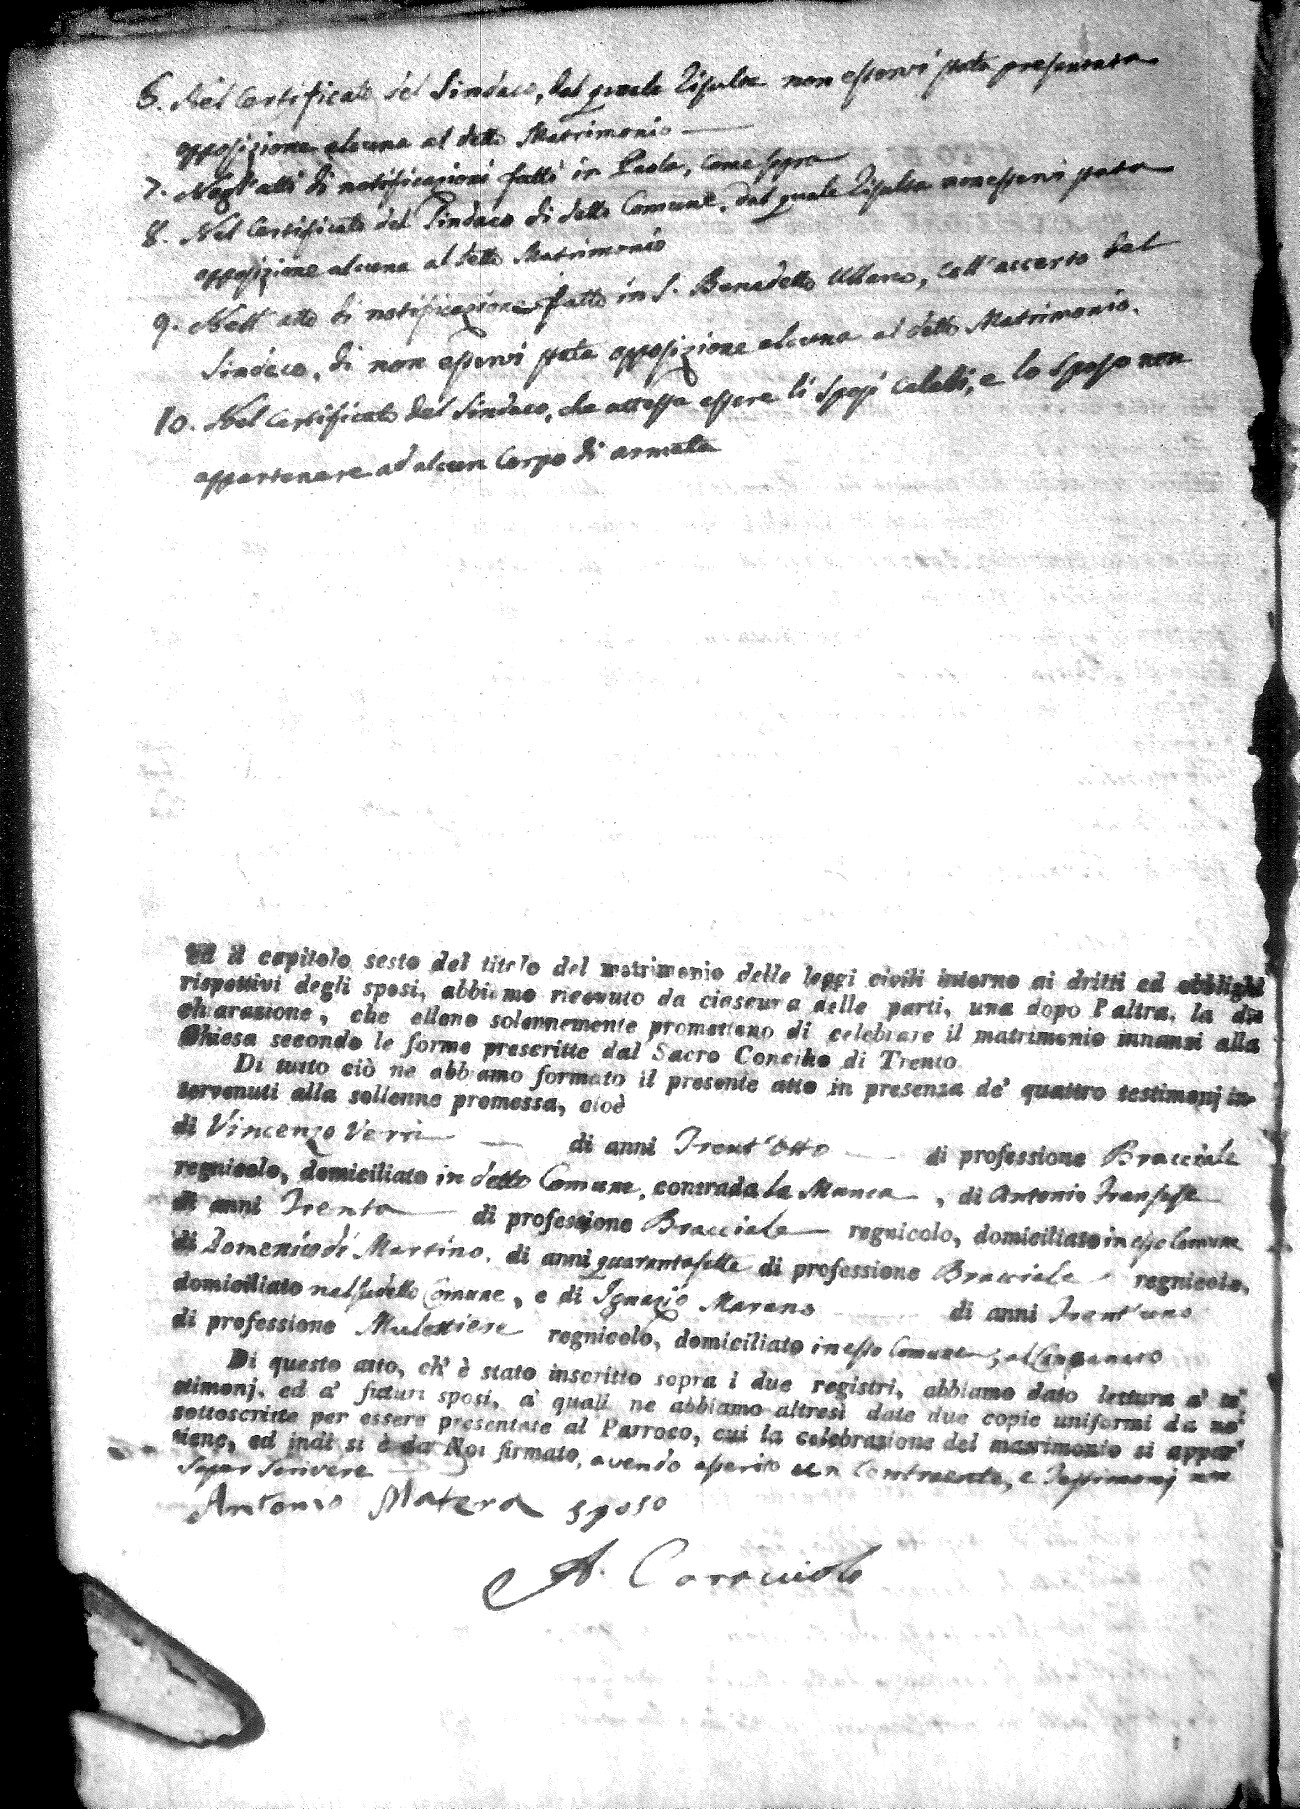 6. Nel Certificato del Sindaco, dal quale risulta non esservi stata presentata
opposizione alcuna al detto Matrimonio
7. Negl'atti di notificazioni fatti in Paola, come sopra
8. Nel Certificato del Sindaco di detto Comune, dal quale risulta non esservi stata
opposizione alcuna al detto Matrimonio
9. Nell'atto di notificazione fatto in S. Benedetto Ullano, coll'accerto del
Sindaco, di non esservi stata opposizione alcuna al detto Matrimonio.
10. Nel Certificato del Sindaco, che attessa essere li sposi celabi, e lo sposo non
appartenere ad alcun Corpo di armata
Ed il capitolo sesto del titolo del matrimonio delle leggi civili intorno ai dritti ed obblighi
rispettivi degli sposi, abbiamo ricevuto da ciascuna delle parti, una dopo l'altra, la di-
chiarazione, che elleno solennemente promettono di celebrare il matrimonio innanzi alla
Chiesa secondo le forme prescritte dal Sacro Concilio di Trento
Di tutto ciò ne abbiamo formato il presente atto in presenza de' quattro testimonj in-
tervenuti alla sollenne promessa, cioè
di Vincenzo Verri di anni Trent'Otto di professione Bracciale
regnicolo, domiciliato in detto Comune, contrada la Manca, di Antonio
di anni Trenta di professione Bracciale regnicolo, domiciliato in esso Comune
di Domenico di Martino, di anni quarantasette di professione Bracciale regnicolo,
domiciliato nel sudetto Comune, e di Ignazio Marano di anni Trent'uno
di professione Mulettiere regnicolo, domiciliato in esso Comune,
Di questo atto, ch'è stato inscritto sopra i due registri, abbiamo dato lettura a' te-
stimonj, ed a' futuri sposi, a' quali ne abbiamo altresì date due copie uniformi da noi
sottoscritte per essere presentate al Parroco, cui la celebrazione del matrimonio si appar-
tiene, ed indi si è da Noi firmato, avendo asserito e Testimonj non
saper scrivere
Antonio Matera sposo
A. Caracciolo